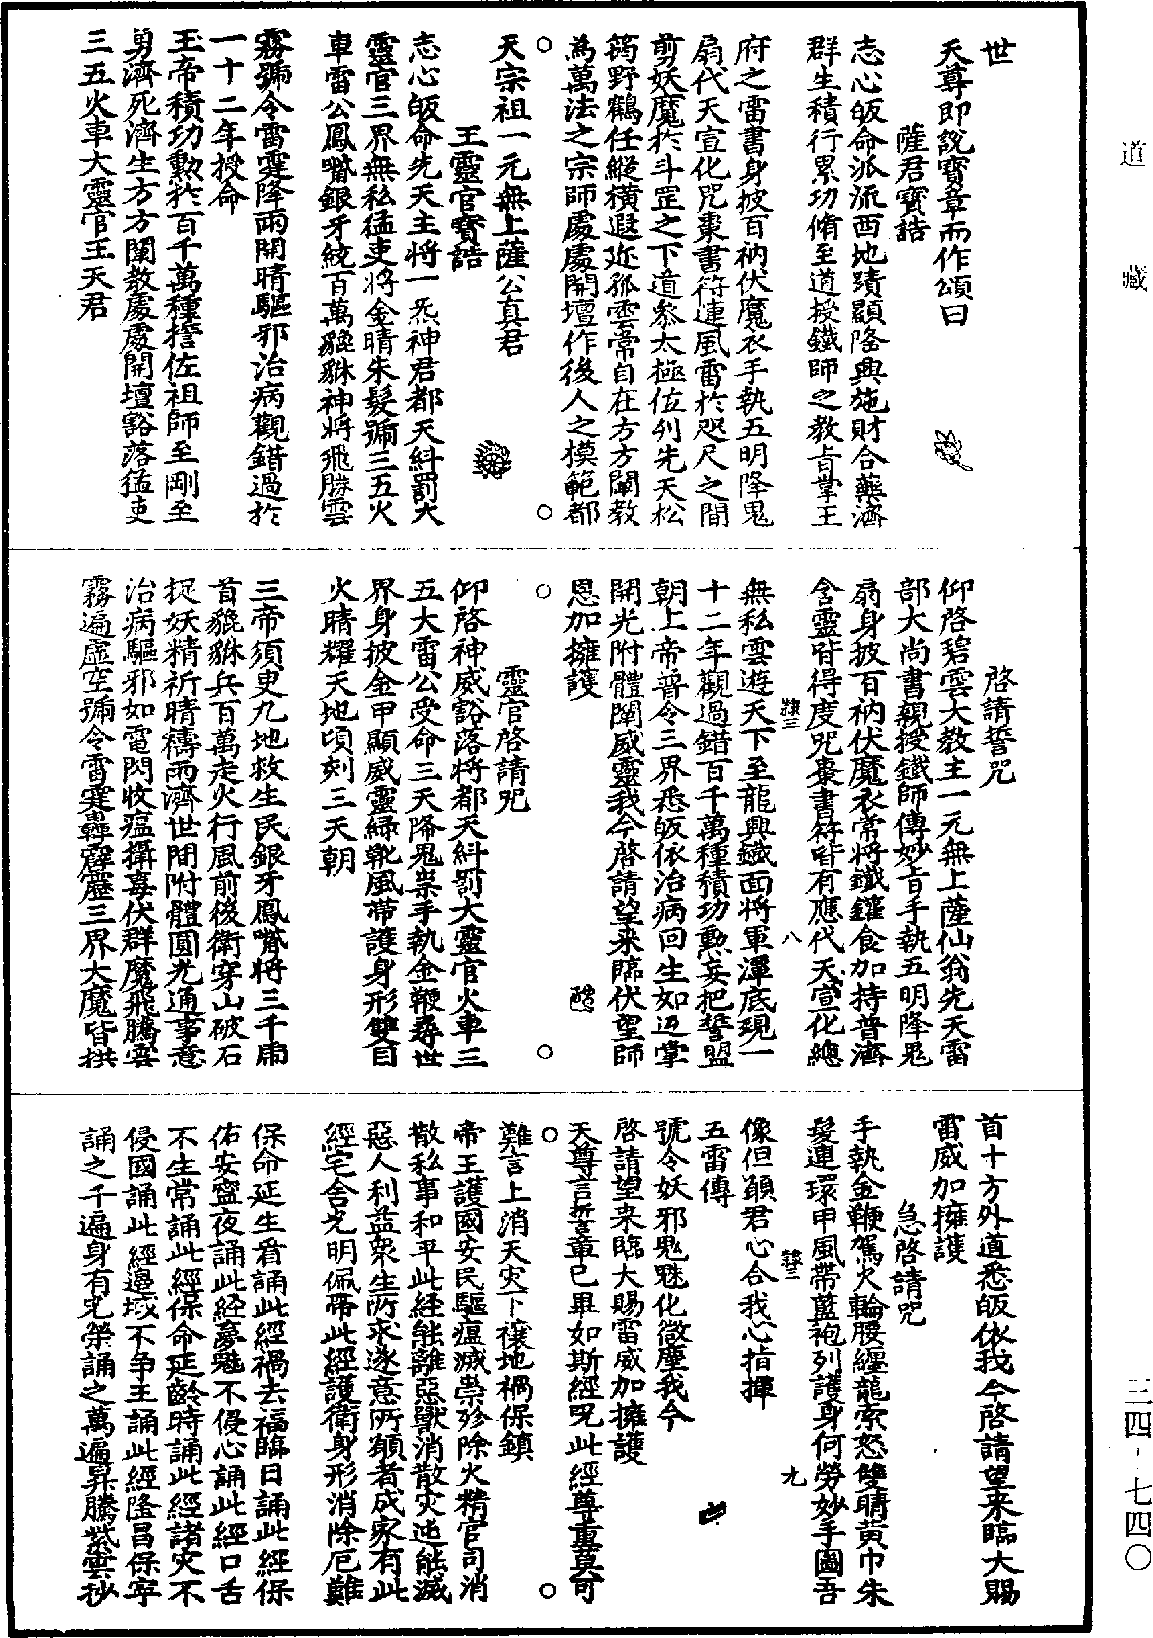 世
天尊即說寶章而作頌曰
薩君寶誥
志心皈命派流西地蹟顯隆興施財合藥濟
群生積行累功脩至道授鐵師之教旨掌王
府之雷書身披百衲伏魔衣手執五明降鬼
扇代天宣化咒棗書符連風雷於咫尺之間
剪妖魔於斗罡之下道參太極位列先天松
筠野鶴任縱橫遐迩孤雲常自在方方闡教
為萬法之宗師處處開壇作後人之模範都
天宗祖一元無上薩公真君
王靈官寶誥
志心皈命先天主將一炁神君都天糾罰大
靈官三界無私猛吏將金睛朱髮號三五火
車雷公鳳嘴銀牙統百萬貔貅神將飛騰雲
霧號令雷霆降雨開晴驅邪治病觀錯過於
一十二年授命
玉帝積功勲於百千萬種誓佐祖師至剛至
勇濟死濟生方方闡教處處開壇豁落猛吏
三五火車大靈官王天君
啓請誓咒
仰啓碧雲大教主一元無上薩仙翁先天雷
部大尚書親授鐵師傳妙旨手執五明降鬼
扇身披百衲伏魔衣常將鐵鑵食加持普濟
含靈皆得度咒棗書符皆有應代天宣化總
無私雲遊天下至龍興鐵面將軍潭底現一
十二年觀過錯百千萬種積功勲妄把誓盟
朝上帝普令三界悉皈依治病回生如返掌
開光附體闡威靈我今啓請望来臨伏望師
恩加擁護
靈官啓請咒
仰啓神威豁落將都天糾罰大靈官火車三
五大雷公受命三天降鬼祟手執金鞭尋世
界身披金甲顯威靈綠靴風帶護身形雙目
火睛耀天地頃刻三天朝
三帝須臾九地救生民銀牙鳳嘴將三千帶
首貔貅兵百萬走火行風前後衛穿山破石
捉妖精祈晴禱雨濟世間附體圓光通事意
治病驅邪如電閃收瘟攝毒伏群魔飛騰雲
霧遍虛空號令雷霆轟霹靂三界大魔皆拱
首十方外道悉皈依我今啓請望来臨大賜
雷威加擁護
急啓請咒
手執金鞭駕火輪腰纏龍索怒雙睛黃巾朱
髮連環甲風帶藍袍列護身何勞妙手圖吾
像但願君心合我心指揮
五雷傳
號令妖邪鬼魅化微塵我今
啓請望来臨大賜雷威加擁護
天尊言誓章已畢如斯經咒此經尊重莫可
難言上消天災下禳地禍保鎮
帝王護國安民驅瘟滅祟殄除火精官司消
散私事和平此經能離惡獸消散災迍能滅
惡人利益眾生所求遂意所願者成家有此
經宅舍光明佩帶此經護衛身形消除厄難
保命延生看誦此經禍去福臨日誦此經保
佑安寧夜誦此經夢魅不侵心誦此經口舌
不生常誦此經保命延齡時誦此經諸災不
侵國誦此經邊域不爭王誦此經隆昌保寧
誦之千遍身有光榮誦之萬遍昇騰紫雲抄
八
九
道藏
三四-七四〇